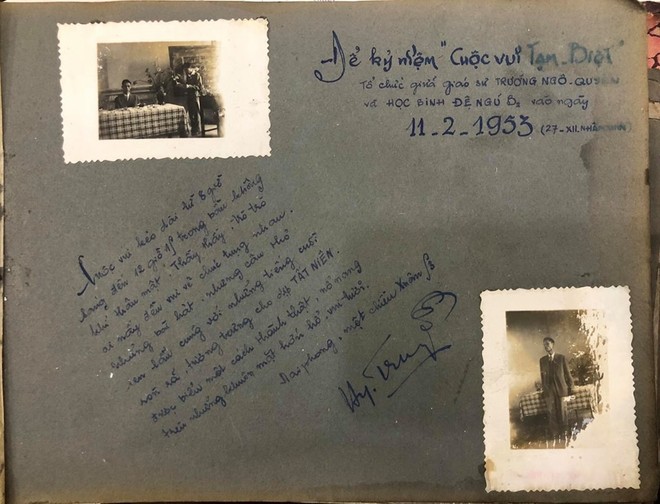 Để kỷ niệm "Cuộc vui TẠM-BIỆT"
Tổ chức giữa giáo sư TRƯỜNG NGÔ-QUYỀN
và HỌC SINH ĐỆ NGŨ B2 vào ngày
11-2-1953 (27-XII.NHÂM
Cuộc vui kéo dài từ 8 giờ
đến 12 giờ trong bầu không
khí thân mật. Thầy thầy, trò trò
ai nấy đều vui vẻ chúc tụng nhau.
Những bài hát, những câu thơ
xen lẫn cùng với những tiếng cười
tượng trưng cho dịp TẤT NIÊN.
được biểu một cách thành thật, nở nang
trên những khuôn mặt hớn hở, vui tươi.
Hải phong, một chiều Xuân 53
Hy. Trung